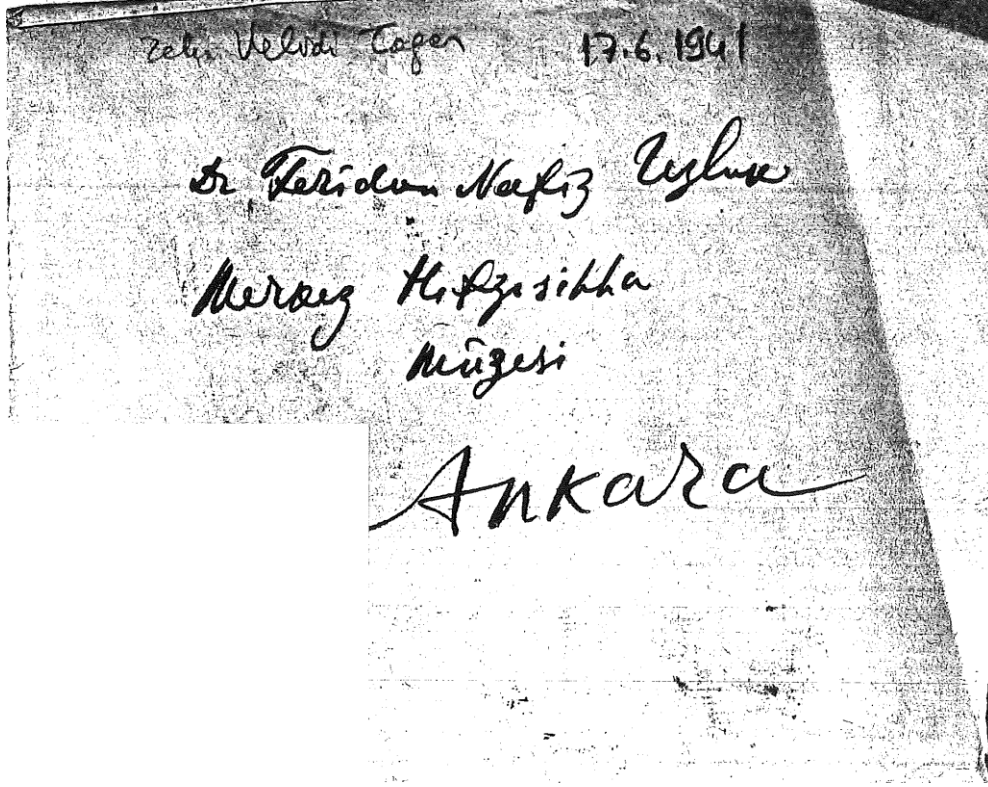 Zeki Velidi Togan 17.6.1941
Dr Feridun Nafiz Uzluk
Merkez Hıfzısıhha
Müzesi
Ankara